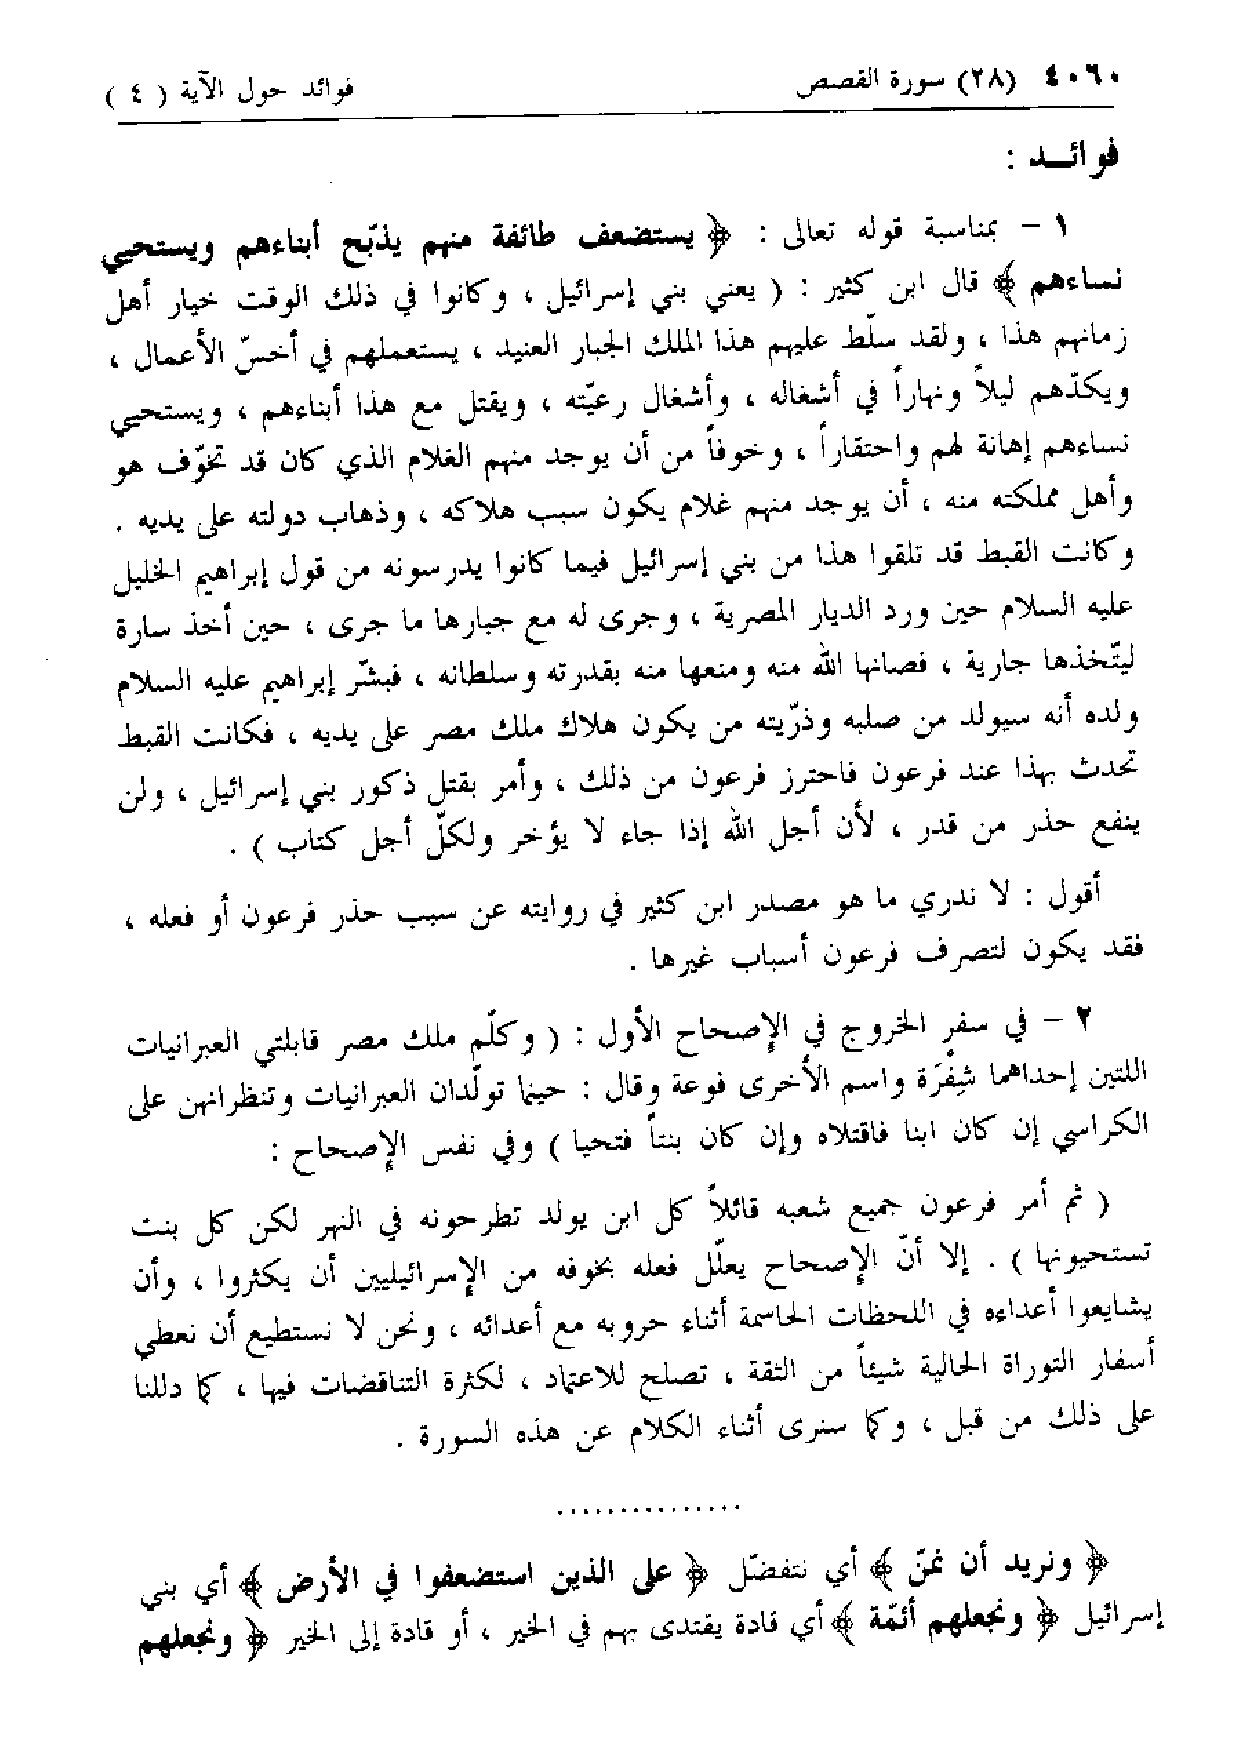 ٤٠٦٠ (٢٨) سورة القصص فوائد حول الآية ( ٤ )
فوائـــد :
١ - بمناسبة قوله تعالى : ﴿ يستضعف طائفة منهم يذبّح أبناءهم ويستحيي
نساءهم ﴾ قال ابن كثير : ( يعني بني إسرائيل ، وكانوا في ذلك الوقت خيار أهل
زمانهم هذا ، ولقد سلّط عليهم هذا الملك الجبار العنيد ، يستعملهم في أخسّ الأعمال ،
ويكدّهم ليلاً ونهاراً في أشغاله ، وأشغال رعيّته ، ويقتل مع هذا أبناءهم ، ويستحيي
نساءهم إهانة لهم واحتقاراً ، وخوفاً من أن يوجد منهم الغلام الذي كان قد تخوّف هو
وأهل مملكته منه ، أن يوجد منهم غلام يكون سبب هلاكه ، وذهاب دولته على يديه .
وكانت القبط قد تلقوا هذا من بني إسرائيل فيما كانوا يدرسونه من قول إبراهيم الخليل
عليه السلام حين ورد الديار المصرية ، وجرى له مع جبارها ما جرى ، حين أخذ سارة
ليتّخذها جارية ، فصانها الله منه ومنعها منه بقدرته وسلطانه ، فبشّر إبراهيم عليه السلام
ولده أنه سيولد من صلبه وذرّيته من يكون هلاك ملك مصر على يديه ، فكانت القبط
تحدث بهذا عند فرعون فاحترز فرعون من ذلك ، وأمر بقتل ذكور بني إسرائيل ، ولن
ينفع حذر من قدر ، لأن أجل الله إذا جاء لا يؤخر ولكلّ أجل كتاب ) .
أقول : لا ندري ما هو مصدر ابن كثير في روايته عن سبب حذر فرعون أو فعله ،
فقد يكون لتصرف فرعون أسباب غيرها .
٢ - في سفر الخروج في الإصحاح الأول : ( وكلّم ملك مصر قابلتي العبرانيات
اللتين إحداهما شِفْرَة واسم الأخرى فوعة وقال : حينما تولّدان العبرانيات وتنظرانهن على
الكراسي إن كان ابنا فاقتلاه وإن كان بنتاً فتحيا ) وفي نفس الإصحاح :
( ثم أمر فرعون جميع شعبه قائلاً كل ابن يولد تطرحونه في النهر لكن كل بنت
تستحيونها ) . إلا أنّ الإصحاح يعلّل فعله بخوفه من الإسرائيليين أن يكثروا ، وأن
يشايعوا أعداءه في اللحظات الحاسمة أثناء حروبه مع أعدائه ، ونحن لا نستطيع أن نعطي
أسفار التوراة الحالية شيئاً من الثقة ، تصلح للاعتماد ، لكثرة التناقضات فيها ، كما دللنا
على ذلك من قبل ، وكما سنرى أثناء الكلام عن هذه السورة .
...............
﴿ ونريد أن نمنّ ﴾ أي نتفضّل ﴿ على الذين استضعفوا في الأرض ﴾ أي بني
إسرائيل ﴿ ونجعلهم أئمّة ﴾ أي قادة يقتدى بهم في الخير ، أو قادة إلى الخير ﴿ ونجعلهم